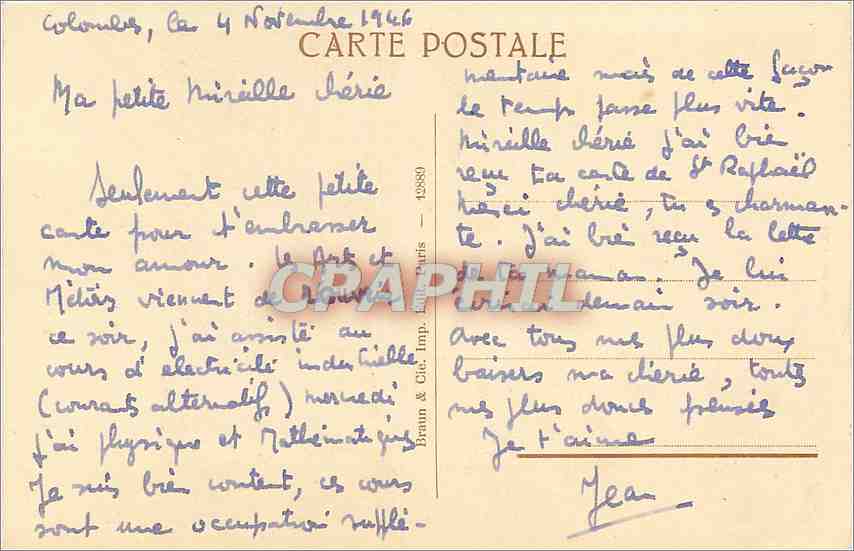 Colombes, le 4 Novembre 1946
CARTE POSTALE
Ma petite Mireille chérie
Seulement cette petite
carte pour t'embrasser
mon amour. Les Art et
Métiers viennent de rouvrir
ce soir, j'ai assisté au
cours d'électricité industrielle
(courants alternatifs) mercredi
j'ai physique et Mathématiques
Je suis bien content, ces cours
sont une occupation supplé-
mentaire mais de cette façon
le temps passe plus vite.
Mireille chérie j'ai bien
reçu ta carte de St Raphaël
Merci chérie, tu es charman-
te. J'ai bien reçu la lettre
de ta maman. Je lui
écrirai demain soir.
Avec tous mes plus doux
baisers ma chérie, toutes
mes plus douces pensées
Je t'aime
Jean
Braun & Cie. Imp. Edit. Paris — 12889
CPAPHIL